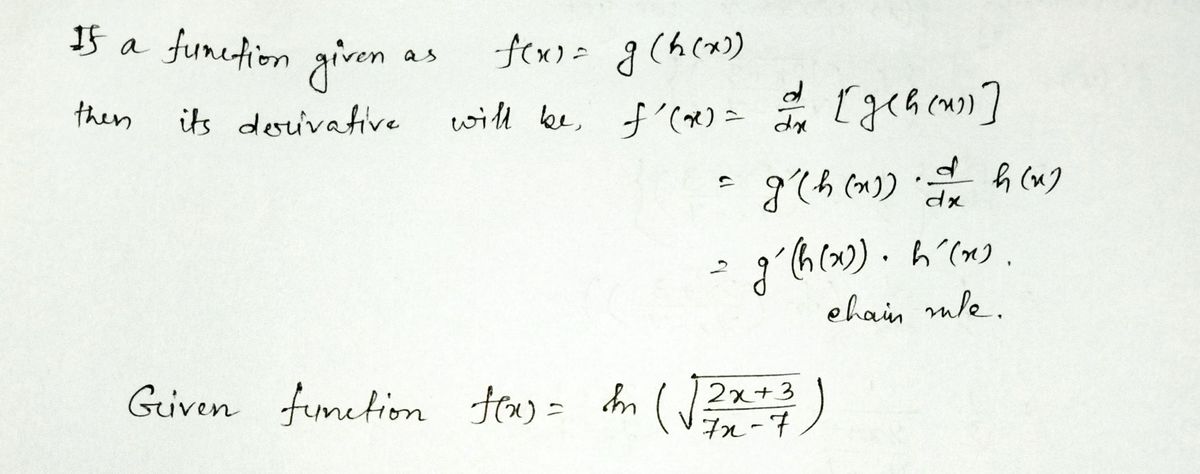 If a function given as f(x) = g(h(x))
then its derivative will be, f'(x) = d/dx [g(h(x))]
= g'(h(x)) · d/dx h(x)
= g'(h(x)) · h'(x).
chain rule.
Given function f(x) = ln (√((2x+3)/(7x-7)))